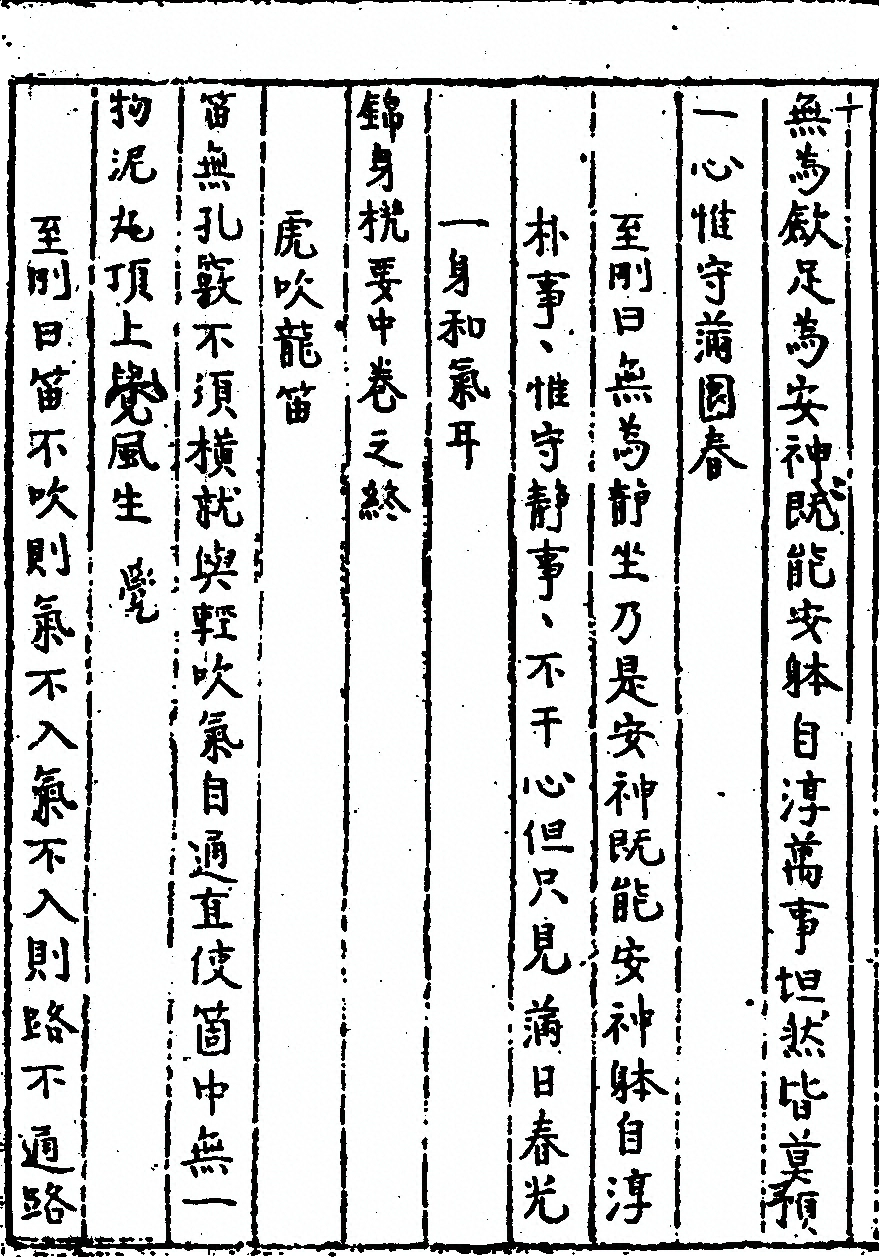 無為歛足為安神既能安躰自淳萬事坦然皆莫預
一心惟守滿園春
至剛曰無為静坐乃是安神既能安神躰自淳
朴事、惟守静事、不干心但只見滿日春光
一身和氣耳
錦身機要中卷之終
虎吹龍笛
笛無孔竅不須橫就與輕吹氣自通直使箇中無一
物泥丸頂上覺風生 覺
至剛曰笛不吹則氣不入氣不入則路不通路